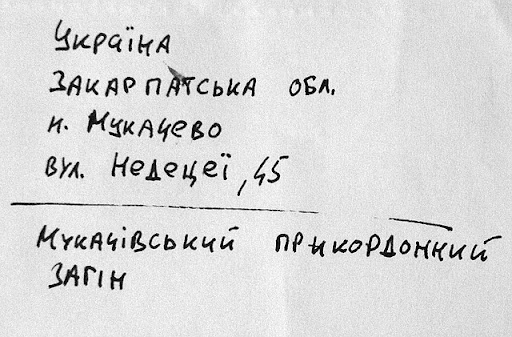 Україна
Закарпатська обл.
м. Мукачево
вул. Недецеї, 45
Мукачівський прикордонний
загін